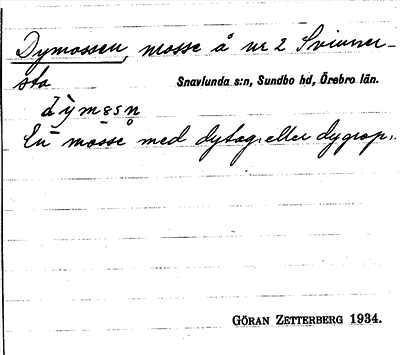 Dymossen, mosse å nr 2 Svinner-
sta
Snavlunda s:n, Sundbo hd, Örebro län.
En mosse med dytag. eller dygrop.
GÖRAN ZETTERBERG 1934.